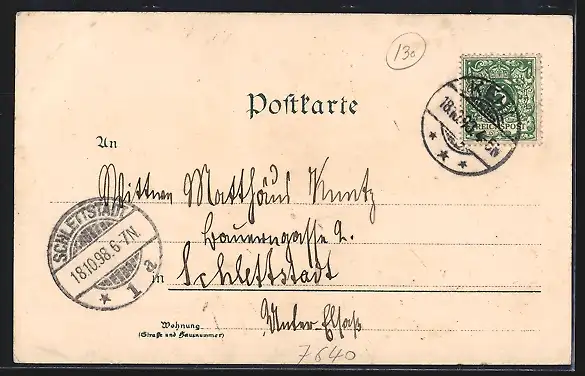 130
Postkarte
REICHSPOST
18.10.98. 4-5N
An
Wittwe Matthäus Kuntz
Bauerngasse 2.
in Schlettstadt
Unter-Elsaß
SCHLETTSTADT
18.10.98.6-7N
* 1 a
Wohnung
(Straße und Hausnummer)
7640